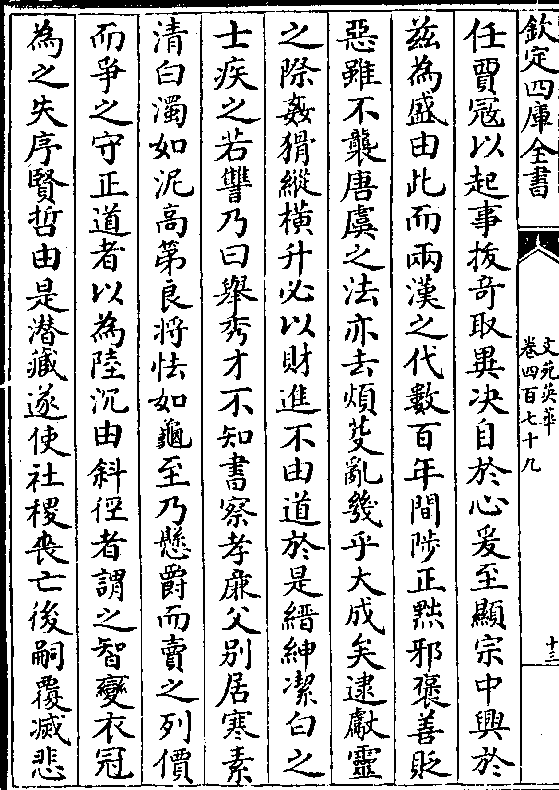 欽定四庫全書
文苑英華
卷四百七十九
十三
任賈寇以起事拔奇取異决自於心爰至顯宗中興於
兹為盛由此而兩漢之代數百年間陟正黙邪褒善貶
惡雖不襲唐虞之法亦去煩芟亂幾乎大成矣逮獻靈
之際姦猾縱横升必以財進不由道於是縉紳潔白之
士疾之若讐乃曰舉秀才不知書察孝廉父别居寒素
清白濁如泥高第良將怯如龜至乃懸爵而賣之列價
而爭之守正道者以為陸沉由斜徑者謂之智變衣冠
為之失序賢哲由是潜藏遂使社稷喪亡後嗣覆滅悲